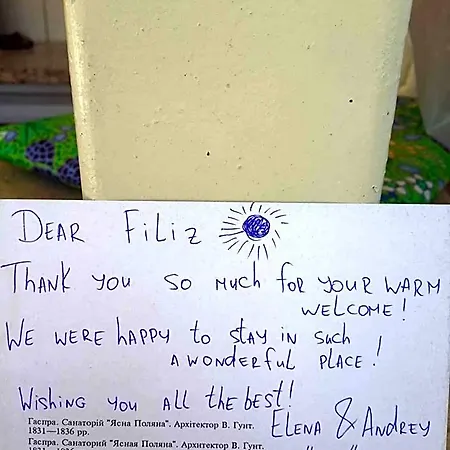 DEAR FiLiz
THANK YOU SO MUCH fOR YOUR WARM
WELCOME!
WE WERE hAPPY to StAY IN SUCh
A WONDERfUL PLACE!
WishiNG YOU ALL thE bEST!
ELENA & ANDREY
Гаспра. Санаторій "Ясна Поляна". Архітектор В. Гунт.
1831—1836 рр.
Гаспра. Санаторий "Ясная Поляна". Архитектор В. Гунт.